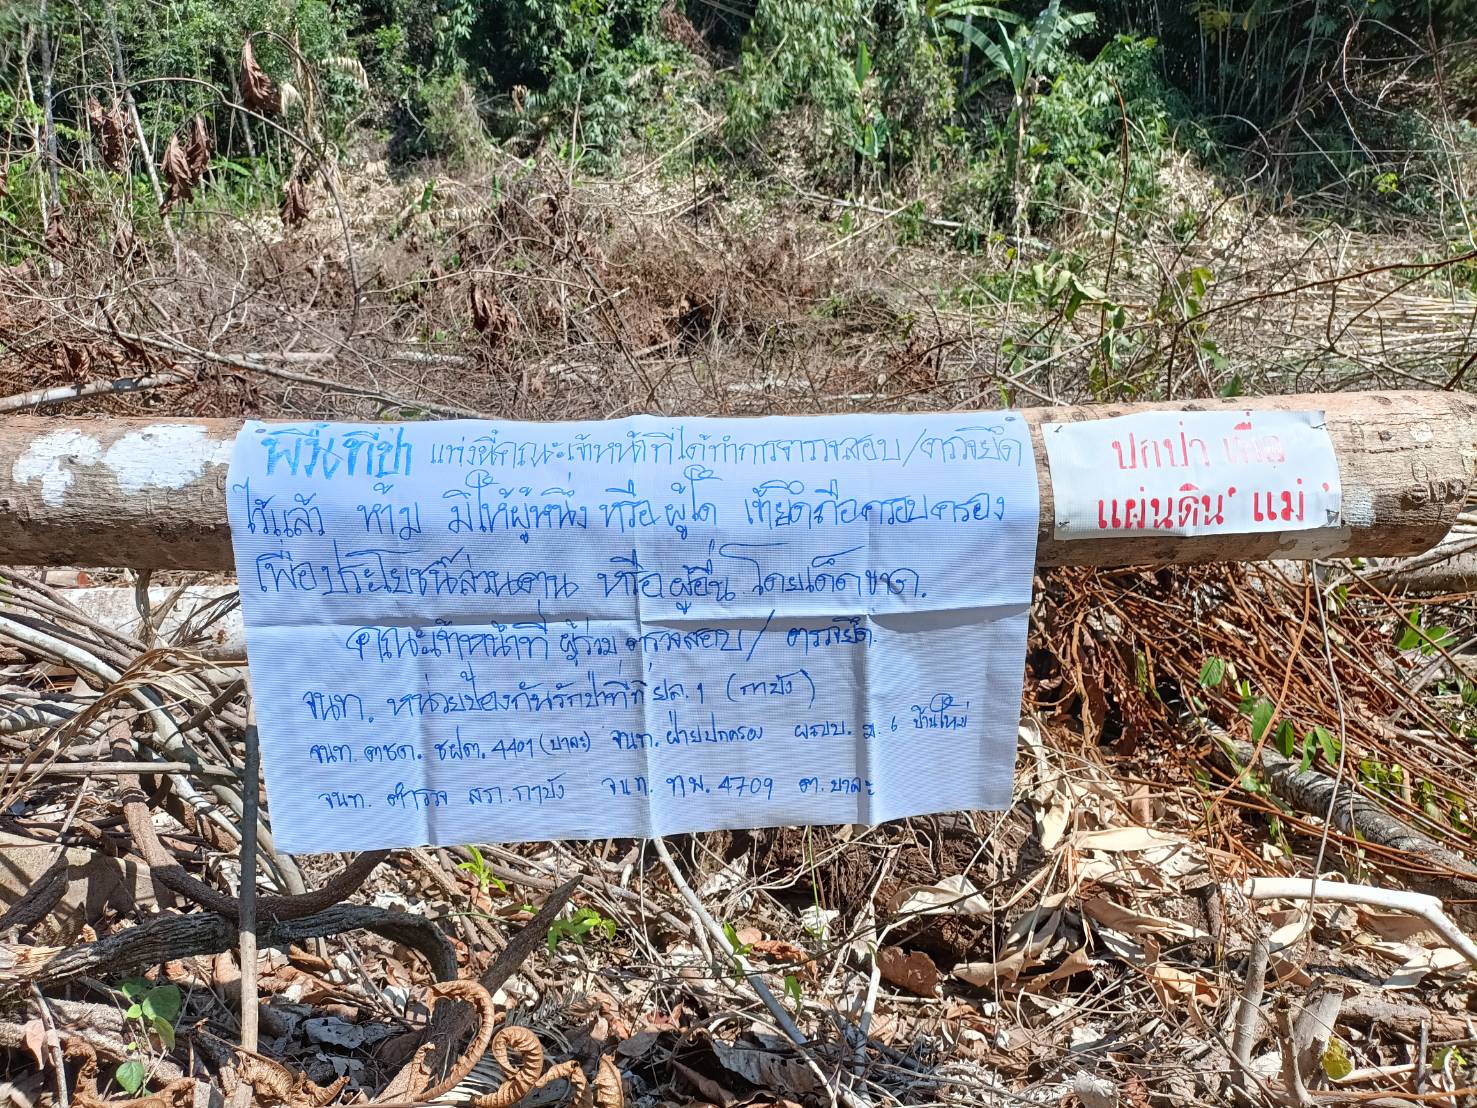 พื้นที่ป่า แห่งนี้คณะเจ้าหน้าที่ได้ทำการตรวจสอบ/ตรวจยึด
ไว้แล้ว ห้าม มิให้ผู้หนึ่ง หรือผู้ใด เข้ายึดถือครอบครอง
เพื่อประโยชน์ส่วนตน หรือผู้อื่น โดยเด็ดขาด.
คณะเจ้าหน้าที่ ผู้ร่วม ตรวจสอบ/ ตรวจยึด.
จนท. หน่วยป้องกันรักป่าที่ ยล.1 (กาบัง)
จนท. ตชด. ชฝต. 4401 (บาละ) จนท. ฝ่ายปกครอง ผรปบ. ม. 6 บ้านใหม่
จนท. ตำรวจ สภ.กาบัง จนท. ทพ. 4709 ต. บาละ
ปกป่า เพื่อ
แผ่นดิน' แม่ '